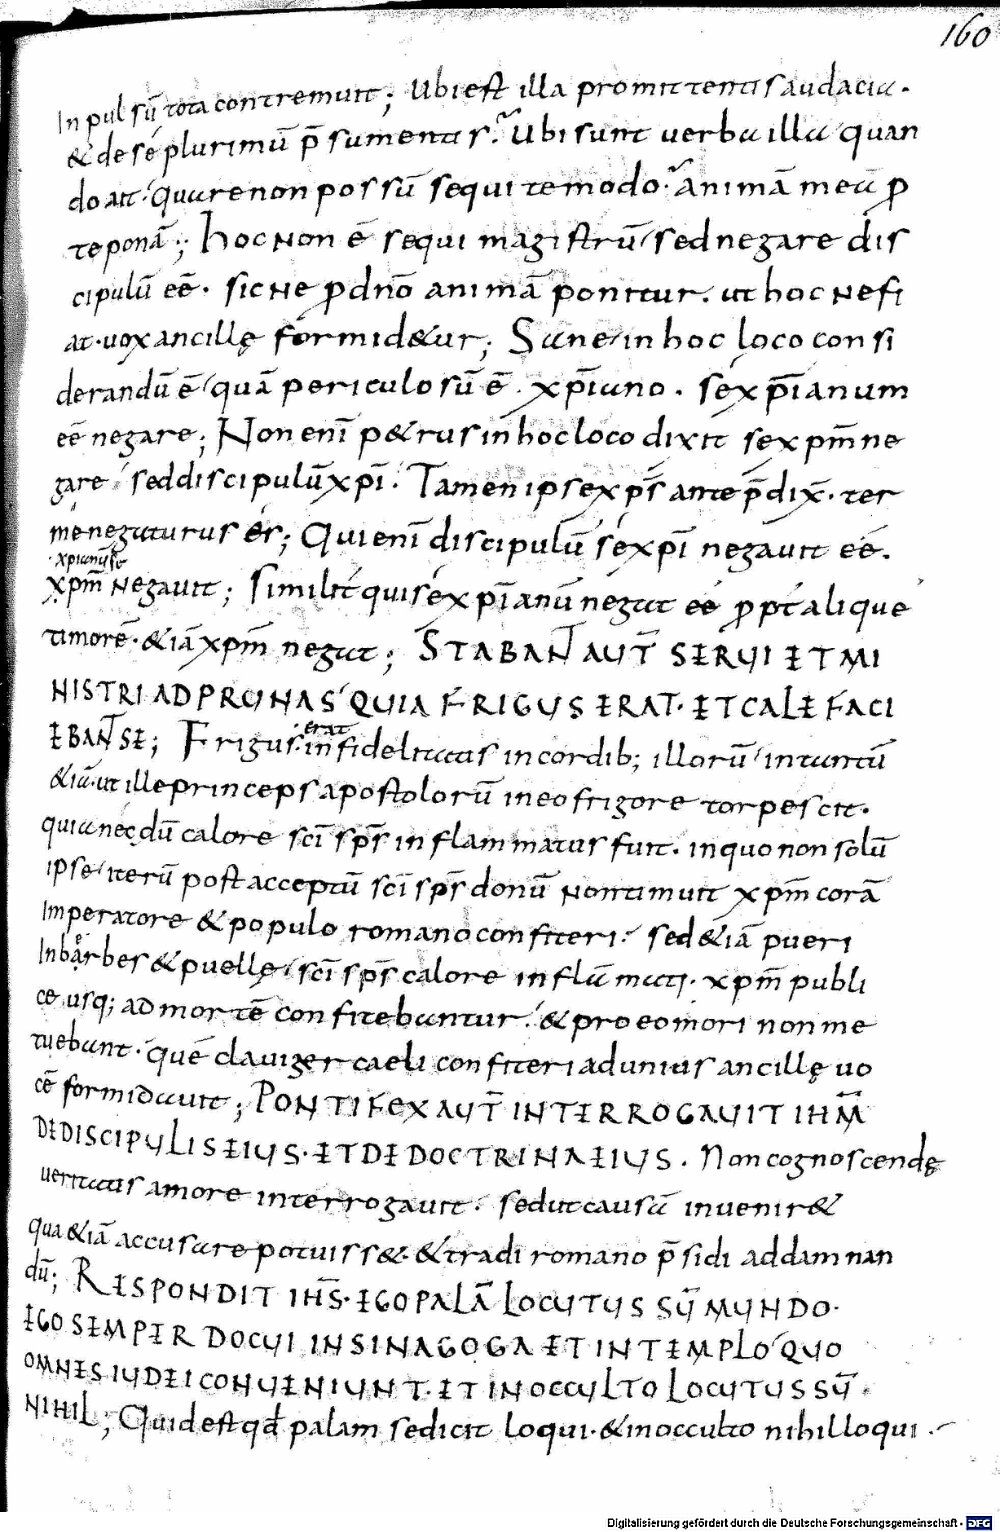 160
Inpulsū tota contremuit; Ubi est illa promittentis audacia.
& de se plurimū p̄sumentis. Ubi sunt verba illa quan
do ait. Quare non possū sequi te modo. animā meā ꝓ
te ponā; hoc non ē sequi magistrū sed negare dis
cipulū eē. sicne ꝓ dn̄o animā ponitur. ut hoc ne fi
at. vox ancillę formid&ur; Sane in hoc loco consi
derandū ē quā periculosū ē xp̄iano. se xp̄ianum
eē negare; Non enī p&rus in hoc loco dixit se xp̄m ne
gare sed discipulū xp̄i. Tamen ipse xp̄s ante p̄dix̄. ter
me negaturus es; Qui enī discipulū se xp̄i negavit eē.
xpianū se
xp̄m negavit; Similit̄ qui se xp̄ianū negat eē ꝓpt̄ alique
timorē. &iā xp̄m negat; STABANT AUT̄ SERUI ET MI
NISTRI AD PRUNAS QUIA FRIGUS ERAT. ET CALEFACI
EBANT SE; Frigus infidelitatis in cordib; illorū intantū
erat
&iā. ut ille princeps apostolorū in eo frigore torpescit.
quia necdū calore sc̄i sp̄s inflammatus fuit. in quo non solū
ipse iterū post acceptū sc̄i sp̄s donū non timuit xp̄m corā
Imperatore & populo romano confiteri. sed &iā pueri
Inbarbes & puellę sc̄i sp̄s calore inflāmati. xp̄m publi
ce usq; ad mortē confitebantur. & pro eo mori non me
tuebant. quē claviger caeli confiteri ad unius ancillę vo
cē formidavit; PONTIFEX AUT̄ INTERROGAUIT IHM̄
DE DISCIPULIS EIUS. ET DE DOCTRINA EIUS. Non cognoscendę
veritatis amore interrogavit. sed ut causā invenir&
qua &iā accusare potuiss&. & tradi romano p̄sidi ad damnan
dū; RESPONDIT IHS̄. EGO PALĀ LOCUTUS SŪ MUNDO.
EGO SEMPER DOCUI IN SINAGOGA ET IN TEMPLO QUO
OMNES IUDEI CONUENIUNT. ET IN OCCULTO LOCUTUS SŪ
NIHIL; Quid est qd̄ palam se dicit loqui. & in occulto nihil loqui.
Digitalisierung gefördert durch die Deutsche Forschungsgemeinschaft - DFG